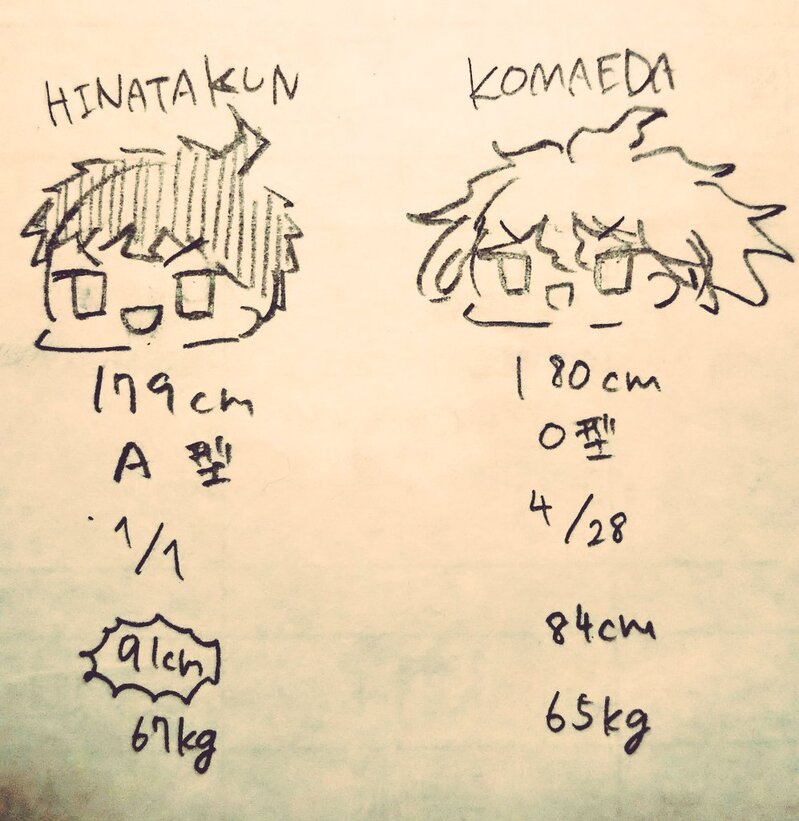 HINATAKUN
179cm
A型
1/1
91cm
67kg
KOMAEDA
180cm
O型
4/28
84cm
65kg